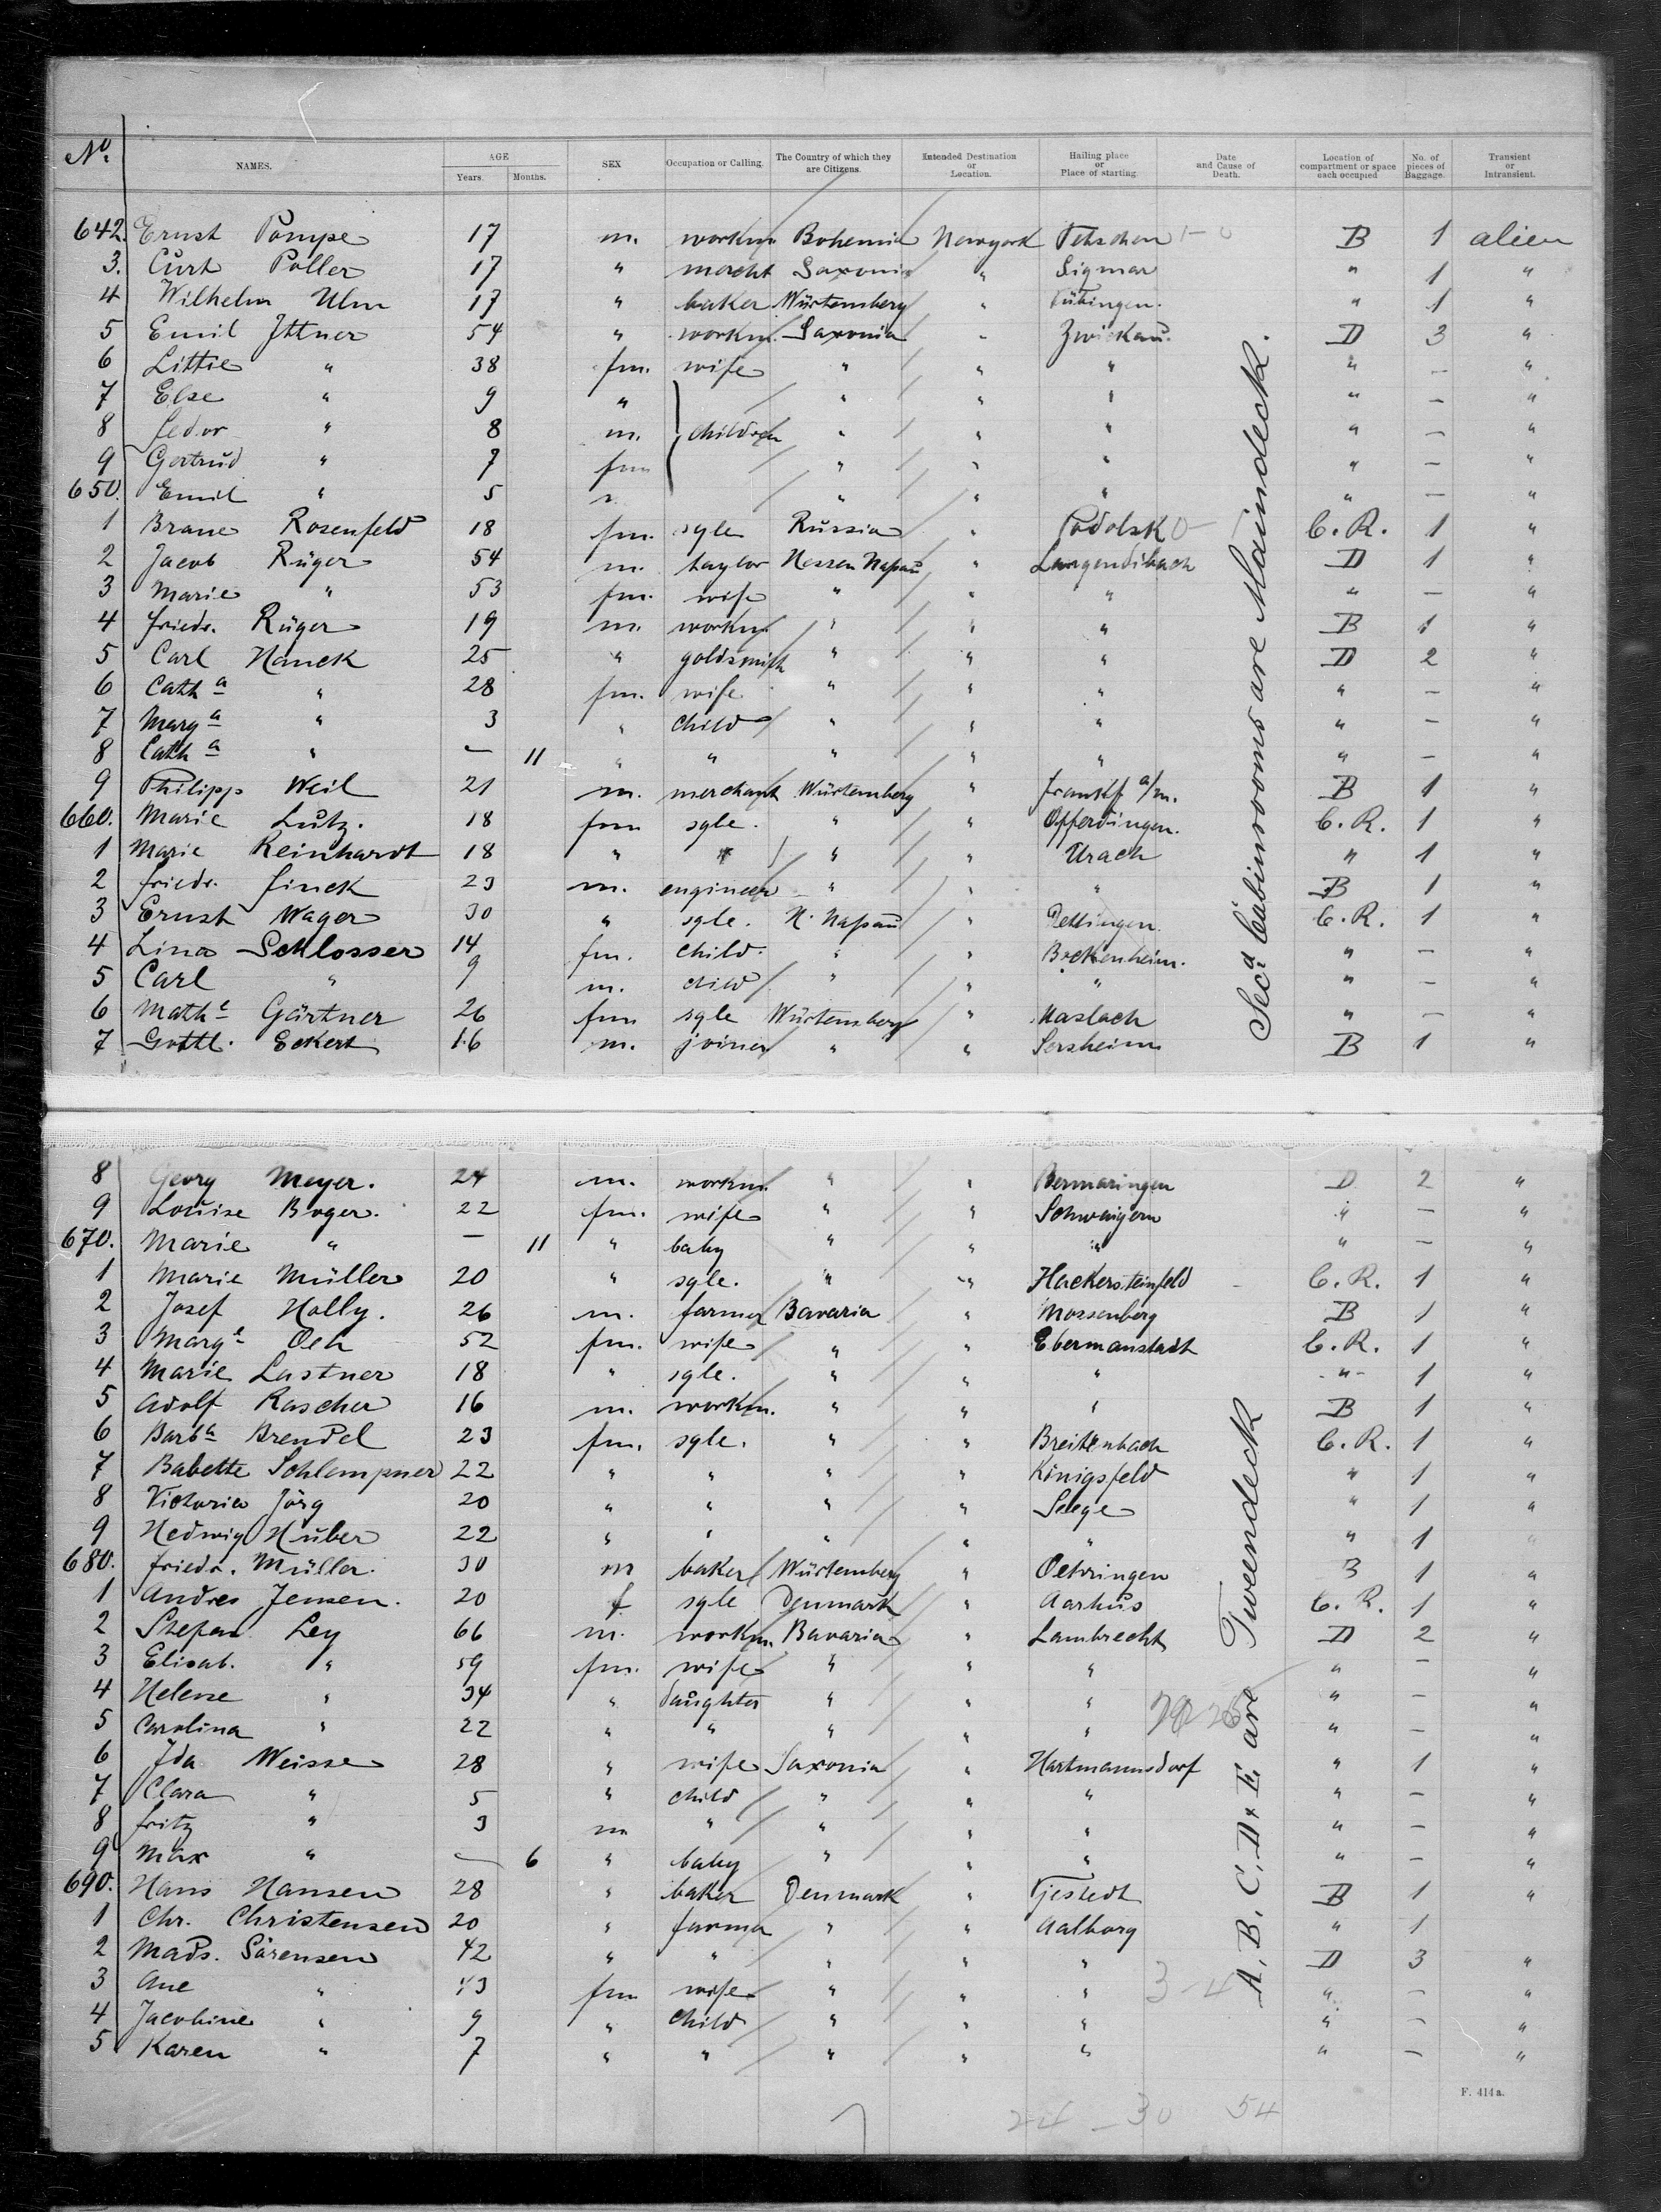 No. NAMES. AGE Years. Months. SEX Occupation or Calling. The Country of which they are Citizens. Intended Destination or Location. Hailing place or Place of starting. Date and Cause of Death. Location of compartment or space each occupied No. of pieces of Baggage. Transient or Intransient.
642. Ernst Pompe 17 m. workm. Bohemia Newyork Tetschen B 1 alien
3. Curt Poller 17 " mercht Saxonia " Sigmar " 1 "
4 Wilhelm Ulm 17 " baker Würtemberg " Tübingen. " 1 "
5 Emil Ittner 54 " workm. Saxonia " Zwickau. D 3 "
6 Littie " 38 fm. wife " " " " — "
7 Else " 9 " " " " " — "
8 fedor " 8 m. children " " " " — "
9 Gertrud " 7 fm " " " " — "
650. Emil " 5 " " " " — "
1 Brane Rosenfeld 18 fm. sgle Russia " Podolsk C.R. 1 "
2 Jacob Rüger 54 m. taylor Hessen Naßau " Langendibach D 1 "
3 Marie " 53 fm. wife " " " " — "
4 friedr. Rüger 19 m. workm. " " " B 1 "
5 Carl Hanek 25 " goldsmith " " " D 2 "
6 Cath a " 28 fm. wife. " " " " — "
7 Marg a " 3 " child " " " " — "
8 Cath a " — 11 " " " " " " — "
9 Philipp Weil 21 m. merchant Würtemberg " frankf a/m. B 1 "
660. Marie Lutz. 18 fm sgle. " " Offerdingen. C.R. 1 "
1 Marie Reinhardt 18 " " " " Urach " 1 "
2 friedr. finck 23 m. engineer " " " B 1 "
3 Ernst Wager 30 " sgle. H. Naßau " Dettingen. C.R. 1 "
4 Lina Schlosser 14 fm. child. " " Bockenheim. " — "
5 Carl " 9 m. child " " " " — "
6 Math e Gärtner 26 fm sgle Würtemberg " Haslach " — "
7 Gottl. Eckert 16 m. joiner " " Sersheim B 1 "
Secd Cabinrooms are Maindeck.
8 Georg Meyer. 24 m. workm. " " Bermaringen D 2 "
9 Louise Boger. 22 fm. wife " " Schwaigern " — "
670. Marie " — 11 " baby " " " " — "
1 Marie Müller 20 " sgle. " " Hackersteinfeld C.R. 1 "
2 Josef Holly. 26 m. farmer Bavaria " Mossenberg B 1 "
3 Marg e Oeh 52 fm. wife " " Ebermanstadt C.R. 1 "
4 Marie Lastner 18 " sgle. " " " " 1 "
5 Adolf Rascher 16 m. workm. " " " B 1 "
6 Barb a Brendel 23 fm. sgle. " " Breitenbach C.R. 1 "
7 Babette Schlempner 22 " " " " Königsfeld " 1 "
8 Victoria Jörg 20 " " " " Seege " 1 "
9 Hedwig Huber 22 " " " " " " 1 "
680. friedr. Müller. 30 m baker Würtemberg " Oehringen B 1 "
1 Andres Jensen. 20 f sgle Denmark " Aarhus C.R. 1 "
2 Stefan Ley 66 m. workm. Bavaria " Lambrecht D 2 "
3 Elisab. " 59 fm. wife " " " " — "
4 Helene " 34 " daughter " " " " — "
5 Carolina " 22 " " " " " " — "
6 Ida Weisse 28 " wife Saxonia " Hartmannsdorf " 1 "
7 Clara " 5 " child " " " " — "
8 fritz " 3 m " " " " " — "
9 Max " — 6 " baby " " " " — "
690. Hans Hansen 28 " baker Denmark " Tjestedt B 1 "
1 Chr. Christensen 20 " farmer " " Aalborg " 1
2 Mads. Sörensen 42 " " " " " D 3 "
3 Ane " 43 fm wife " " " 3-4 " — "
4 Jacobine " 9 " child " " " " — "
5 Karen " 7 " " " " " " — "
A, B, C, D & E are Tweendeck
F. 414a.
24 - 30 54